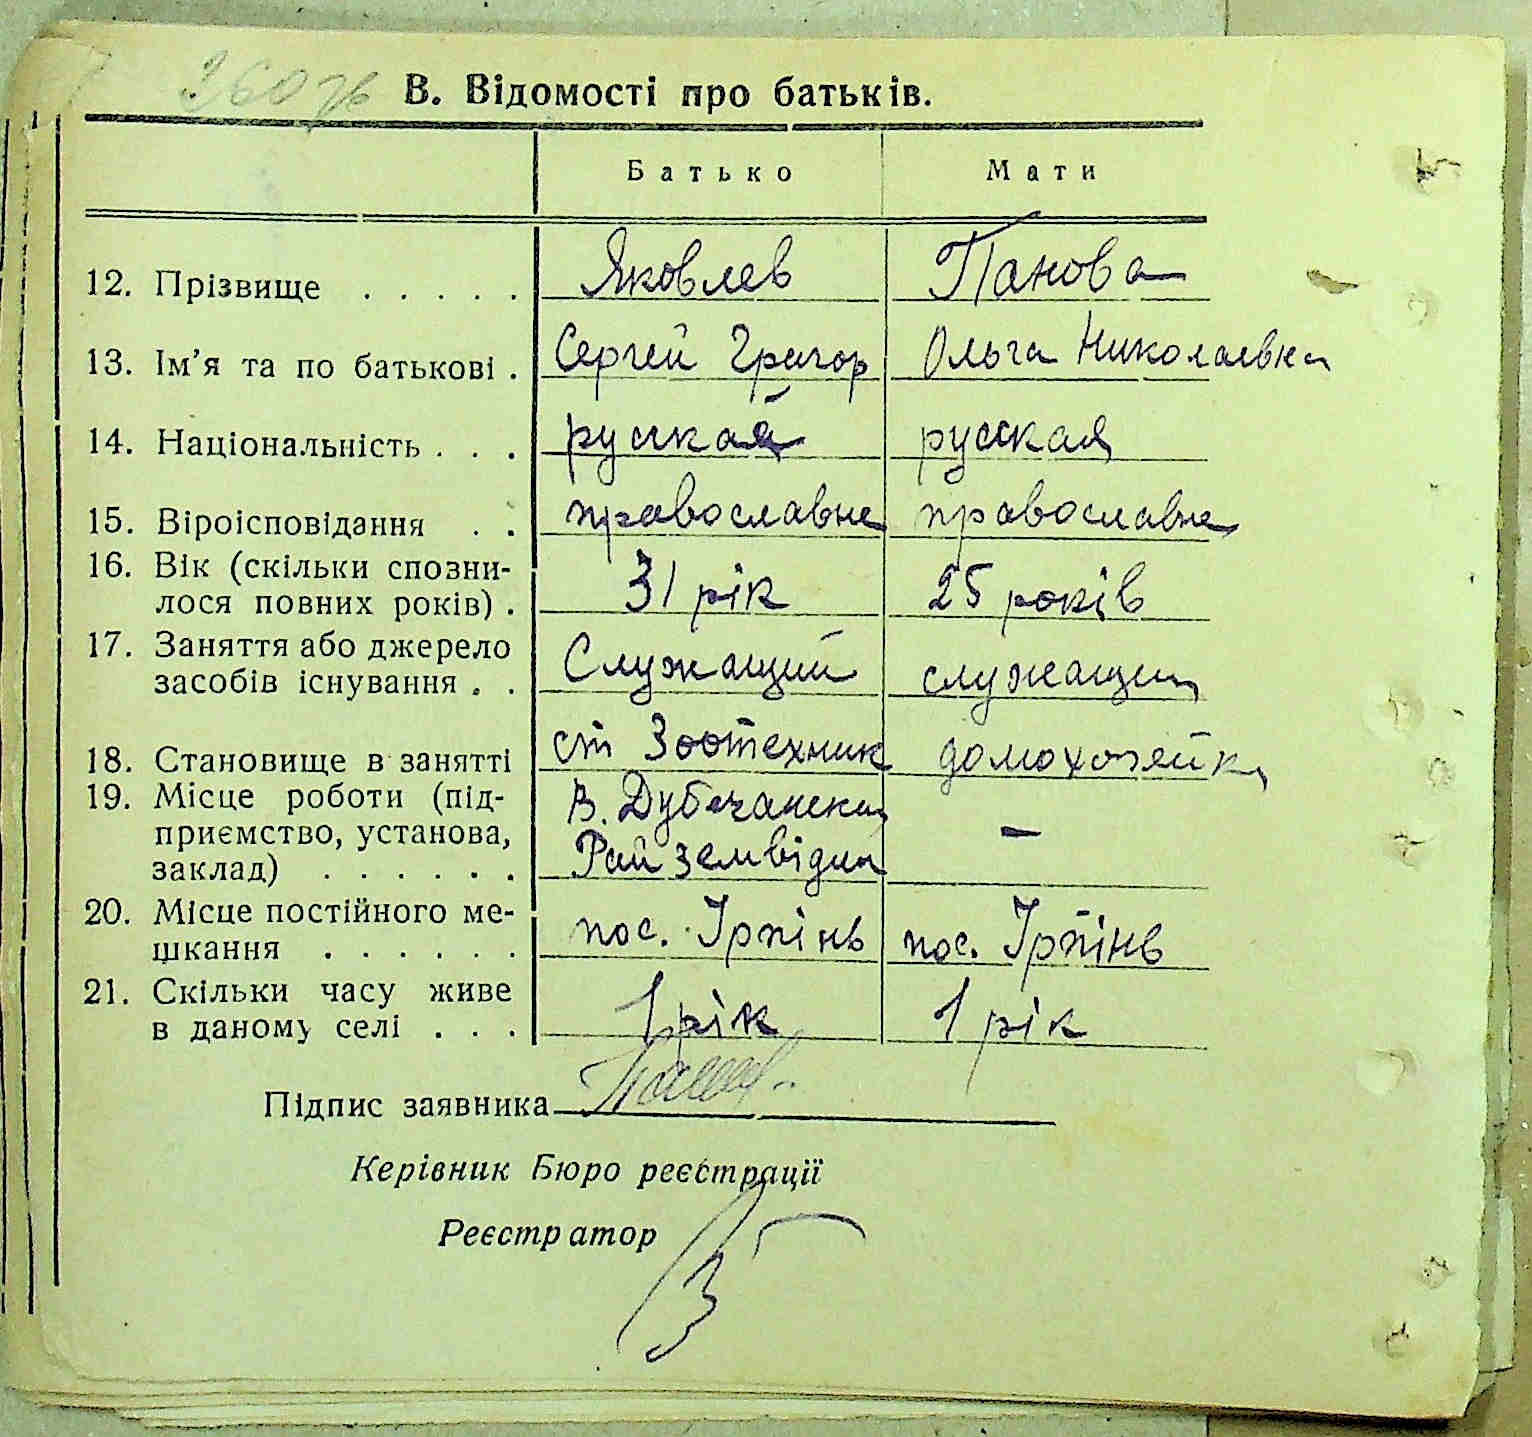 В. Відомості про батьків.
Батько Мати
12. Прізвище . . . . . Яковлев Панова
13. Ім'я та по батькові . Сергей Григор Ольга Николаевна
14. Національність . . . русская русская
15. Віроісповідання . . православне православне
16. Вік (скільки спозни-
лося повних років) . 31 рік 25 років
17. Заняття або джерело
засобів існування . . Служащий служащий
18. Становище в занятті ст Зоотехник домохозейка
19. Місце роботи (під- В. Дубечанский
приємство, установа, –
заклад) . . . . . . Рай земвідділ
20. Місце постійного ме-
шкання . . . . . . пос. Ірпінь пос. Ірпінь
21. Скільки часу живе
в даному селі . . . 1 рік 1 рік
Підпис заявника
Керівник Бюро реєстрації
Реєстратор